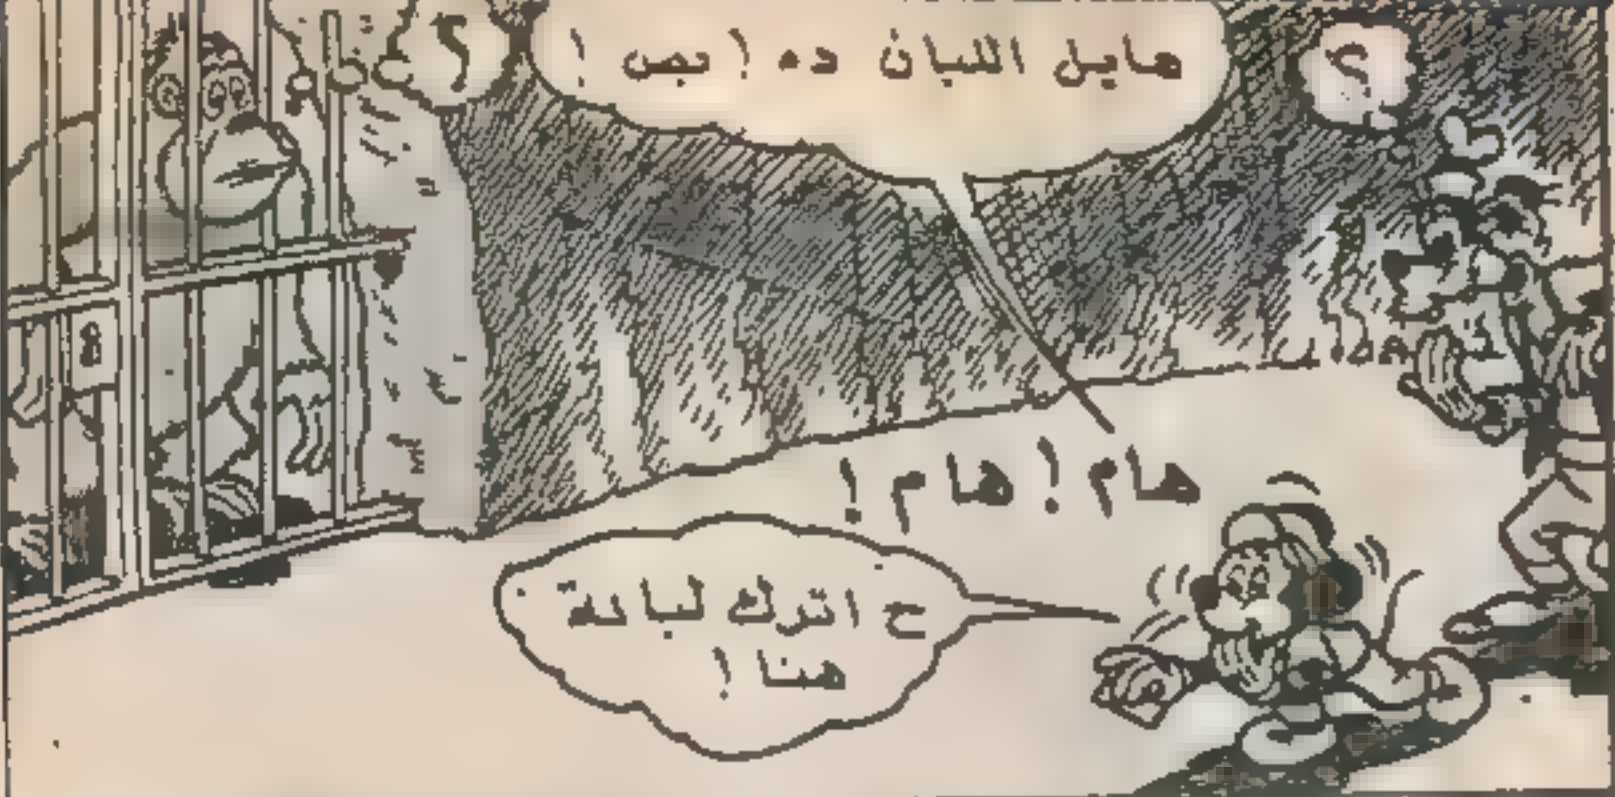 ؟
هايل اللبان ده ! بص !
؟
هام ! هام !
ح اترك لبانه
هنا !